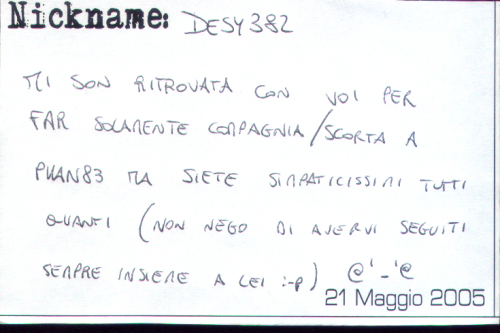 Nickname: DESY382
MI SON RITROVATA CON VOI PER
FAR SOLAMENTE COMPAGNIA/SCORTA A
PHAN83 MA SIETE SIMPATICISSIMI TUTTI
QUANTI (NON NEGO DI AVERVI SEGUITI
SEMPRE INSIEME A LEI :-p) @'-'@
21 Maggio 2005